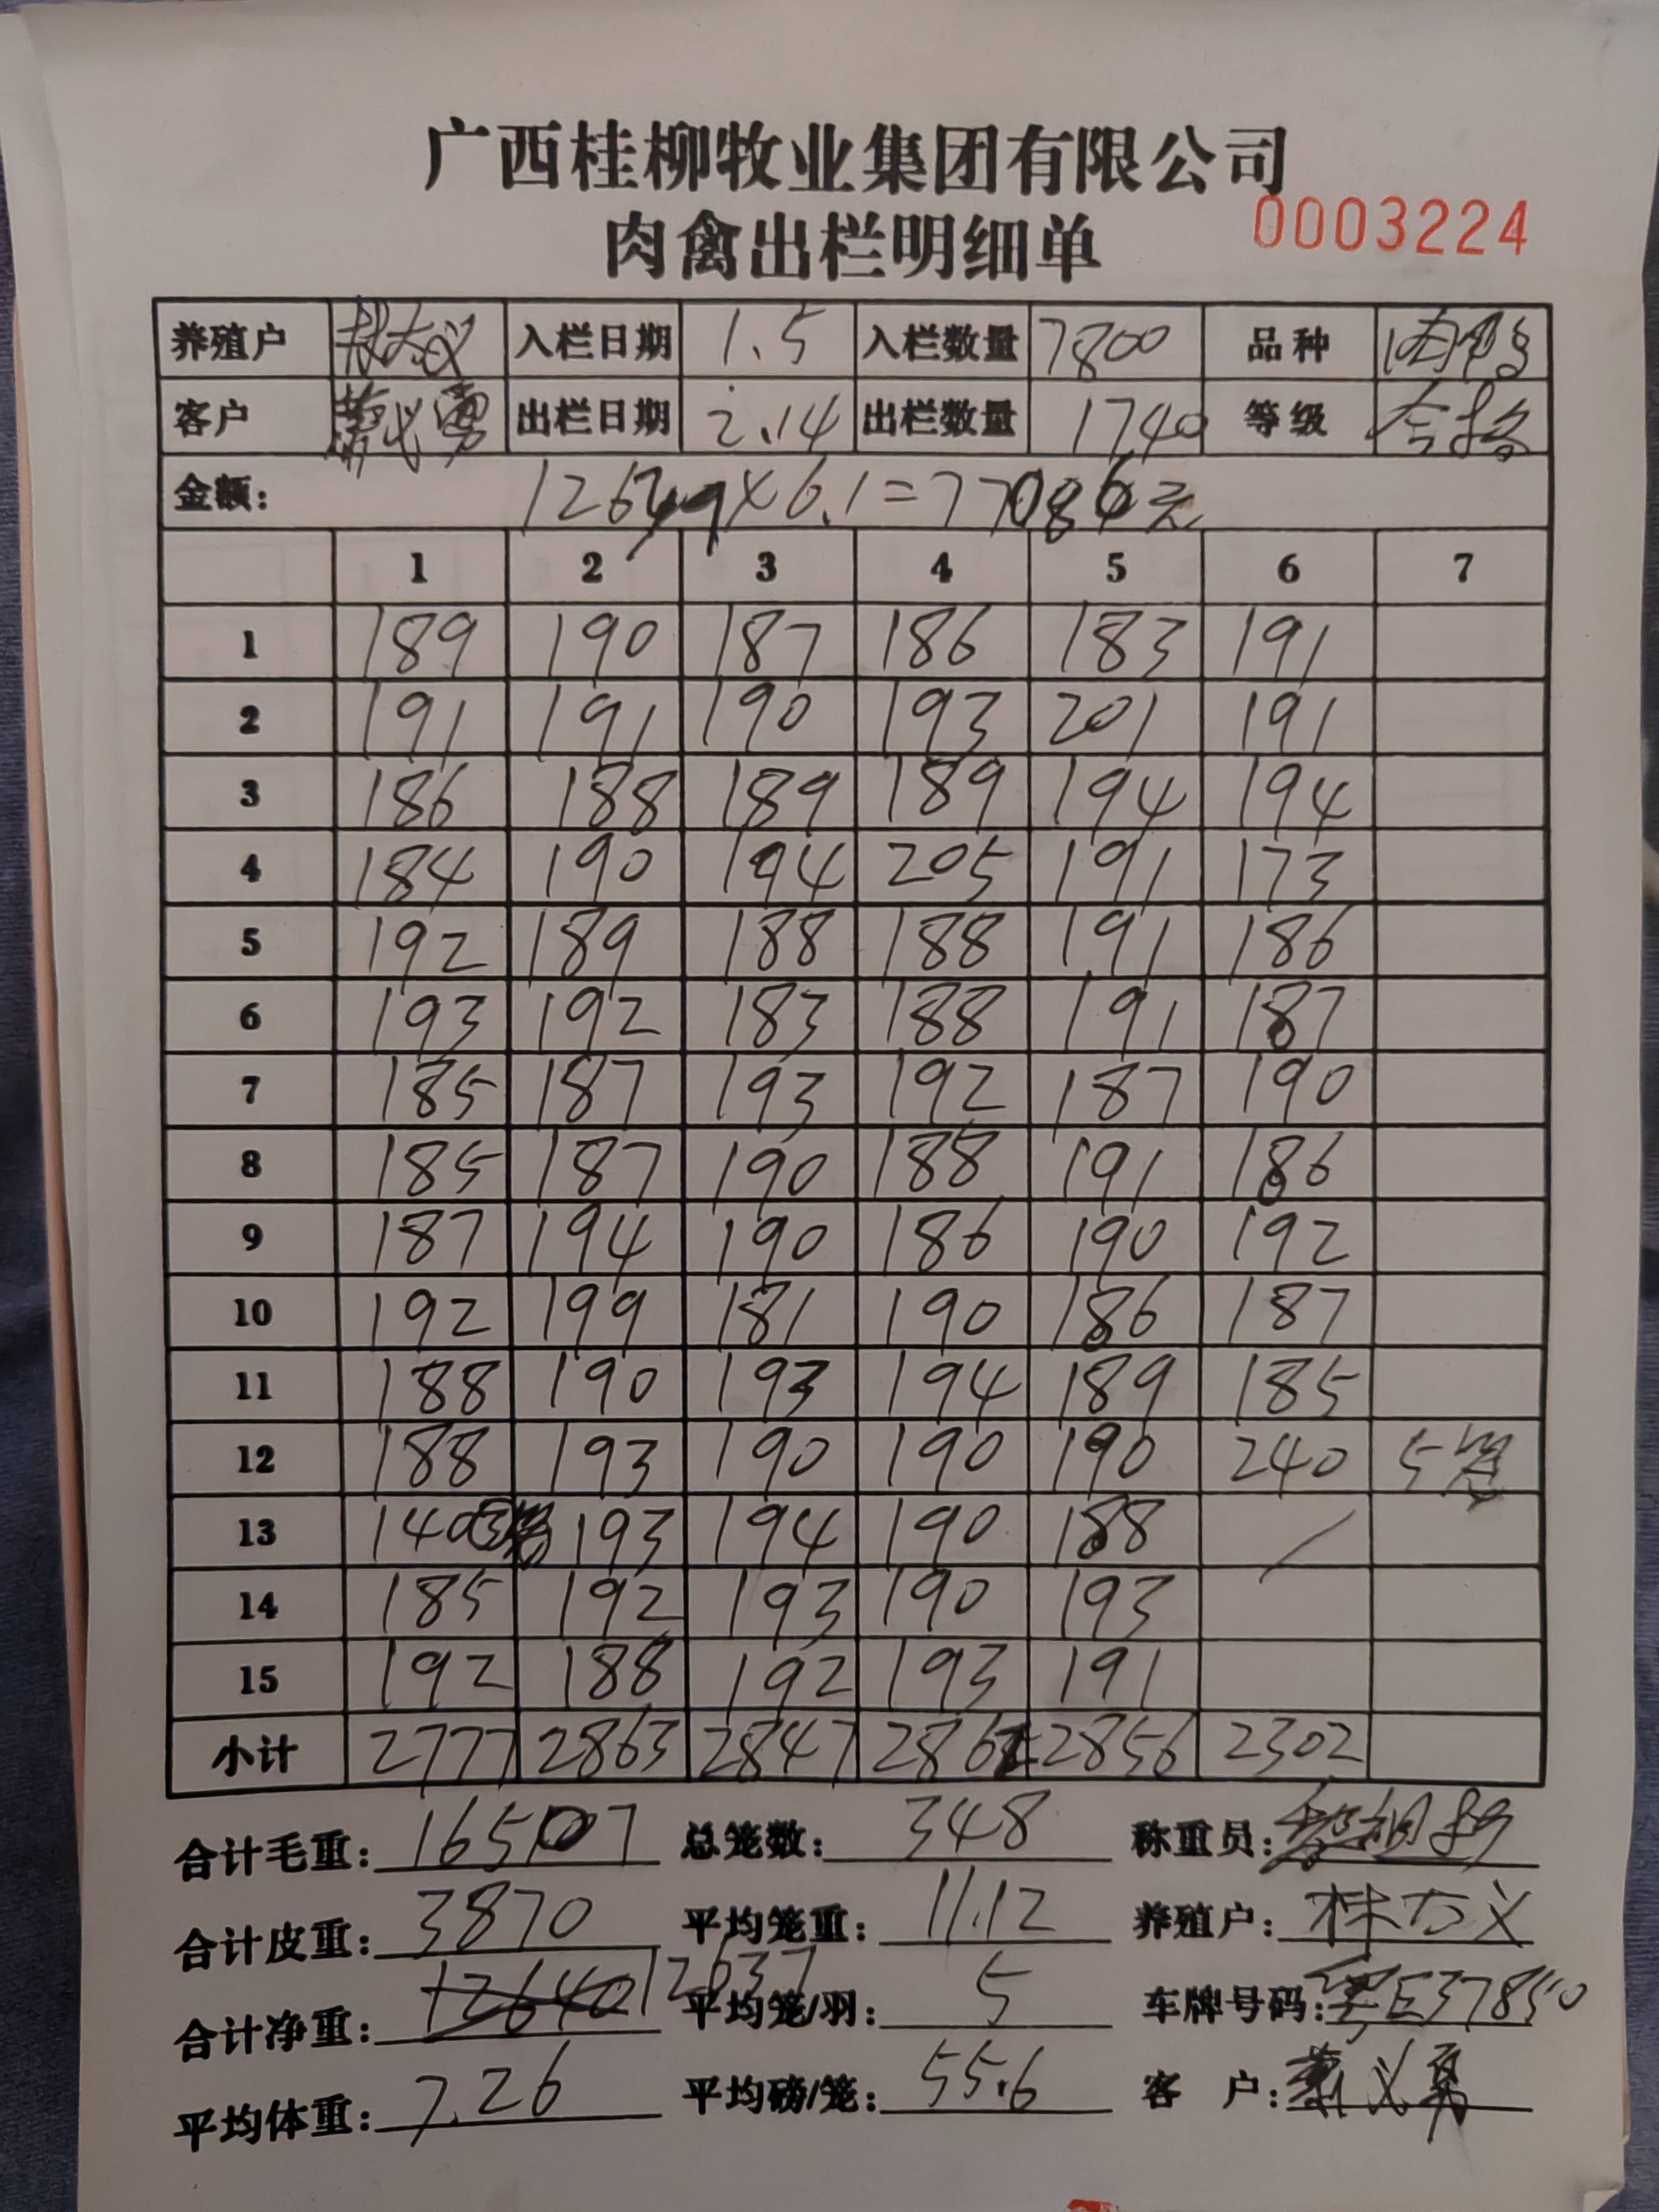 广西桂柳牧业集团有限公司
肉禽出栏明细单 0003224
养殖户 林大义 入栏日期 1.5 入栏数量 7800 品种 肉鸭
客户 萧义勇 出栏日期 2.14 出栏数量 1740 等级 合格
金额: ×6.1=77086元
1 2 3 4 5 6 7
1 189 190 187 186 183 191
2 191 191 190 193 201 191
3 186 188 189 189 194 194
4 184 190 194 205 191 173
5 192 189 188 188 191 186
6 193 192 183 188 191 187
7 185 187 193 192 187 190
8 185 187 190 188 191 186
9 187 194 190 186 190 192
10 192 199 181 190 186 187
11 188 190 193 194 189 185
12 188 193 190 190 190 240 5笼
13 140 193 194 190 188 /
14 185 192 193 190 193
15 192 188 192 193 191
小计 2777 2863 2847 2862 2856 2302
合计毛重: 16507 总笼数: 348 称重员:
合计皮重: 3870 平均笼重: 11.12 养殖户: 林大义
合计净重: 12640 12637 平均笼/羽: 5 车牌号码: 粤E37850
平均体重: 7.26 平均磅/笼: 55.6 客 户: 萧义勇